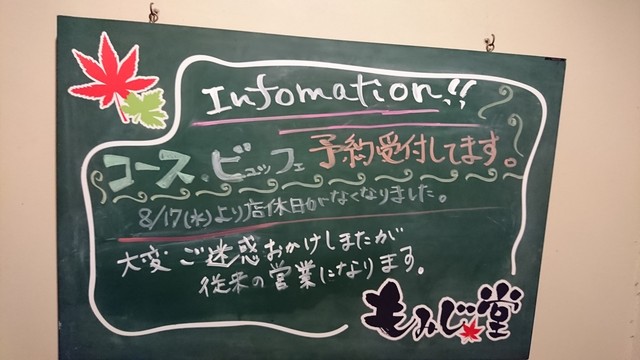 Infomation!!
コース・ビュッフェ 予約受付してます。
8/17(水)より店休日がなくなりました。
大変ご迷惑おかけしましたが
従来の営業になります。
もみじ堂